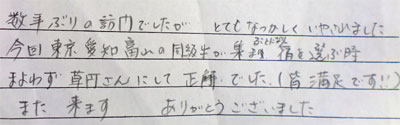 数年ぶりの訪問でしたが とてもなつかしく いやされました
今回 東京 愛知 富山の同級生が 集まり 宿を選ぶ時
まよわず 草円さんにして 正解でした。(皆満足です!!)
また 来ます ありがとうございました